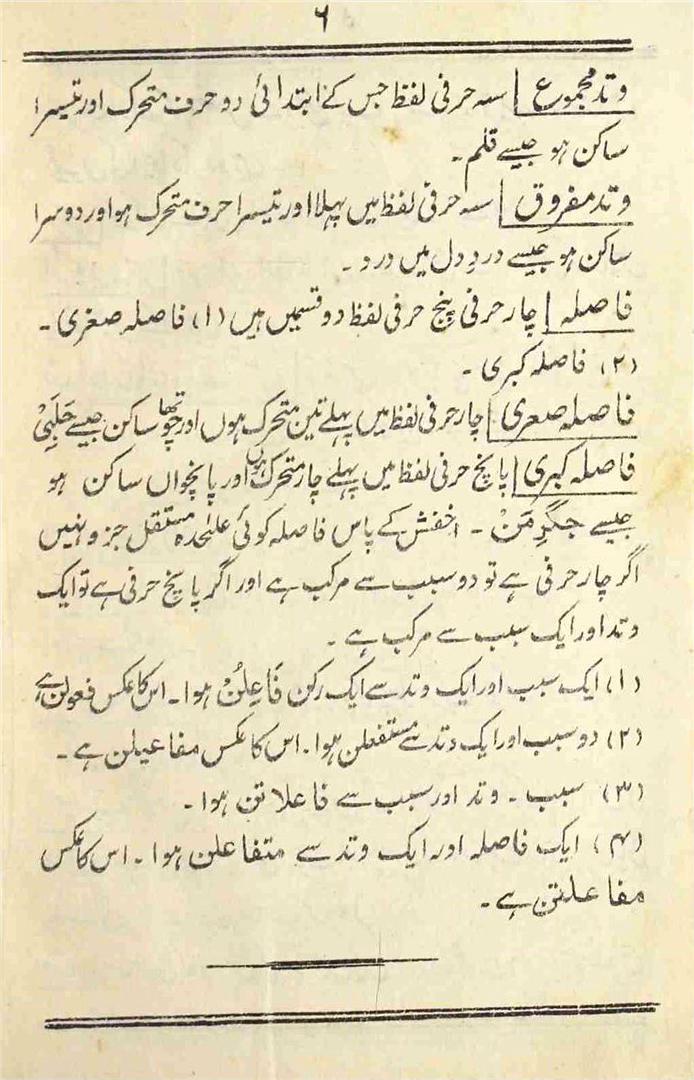 ۶
وتد مجموع | سہ حرفی لفظ جس کے ابتدائی دو حرف متحرک اور تیسرا
ساکن ہو جیسے قلم۔
وتد مفروق | سہ حرفی لفظ میں پہلا اور تیسرا حرف متحرک ہو اور دوسرا
ساکن ہو جیسے دردِ دل میں درد۔
فاصلہ | چار حرفی پنج حرفی لفظ دو قسمیں ہیں (۱) فاصلہ صغری۔
(۲) فاصلہ کبری۔
فاصلہ صعری | چار حرفی لفظ میں پہلے تین متحرک ہوں اور چوتھا ساکن جیسے حَلَبِیْ
فاصلہ کبری | پانچ حرفی لفظ میں پہلے چار متحرک ہوں اور پانچواں ساکن ہو
جیسے جگرِ مَنْ ۔ اخفش کے پاس فاصلہ کوئی علٰحدہ مستقل جزو نہیں
اگر چار حرفی ہے تو دو سبب سے مرکب ہے اور اگر پانچ حرفی ہے تو ایک
وتد اور ایک سبب سے مرکب ہے ۔
(۱) ایک سبب اور ایک وتد سے ایک رکن فَاعِلُنْ ہوا۔ اس کا عکس فعولن ہے
(۲) دو سبب اور ایک وتد سے مستفعلن ہوا۔ اس کا عکس مفاعیلن ہے۔
(۳) سبب ۔ وتد اور سبب سے فاعلاتن ہوا۔
(۴) ایک فاصلہ اور ایک وتد سے متفاعلن ہوا ۔ اس کا عکس
مفاعلتن ہے۔